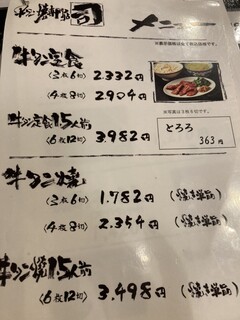 牛タン焼専門店 司
メニュー
牛タン定食
〈3枚6切〉 2.332円
〈4枚8切〉 2.904円
牛タン定食1.5人前
〈6枚12切〉 3.982円
とろろ
363円
牛タン焼
〈3枚6切〉 1.782円 (焼き単品)
〈4枚8切〉 2.354円 (焼き単品)
牛タン焼1.5人前
〈6枚12切〉 3.498円 (焼き単品)